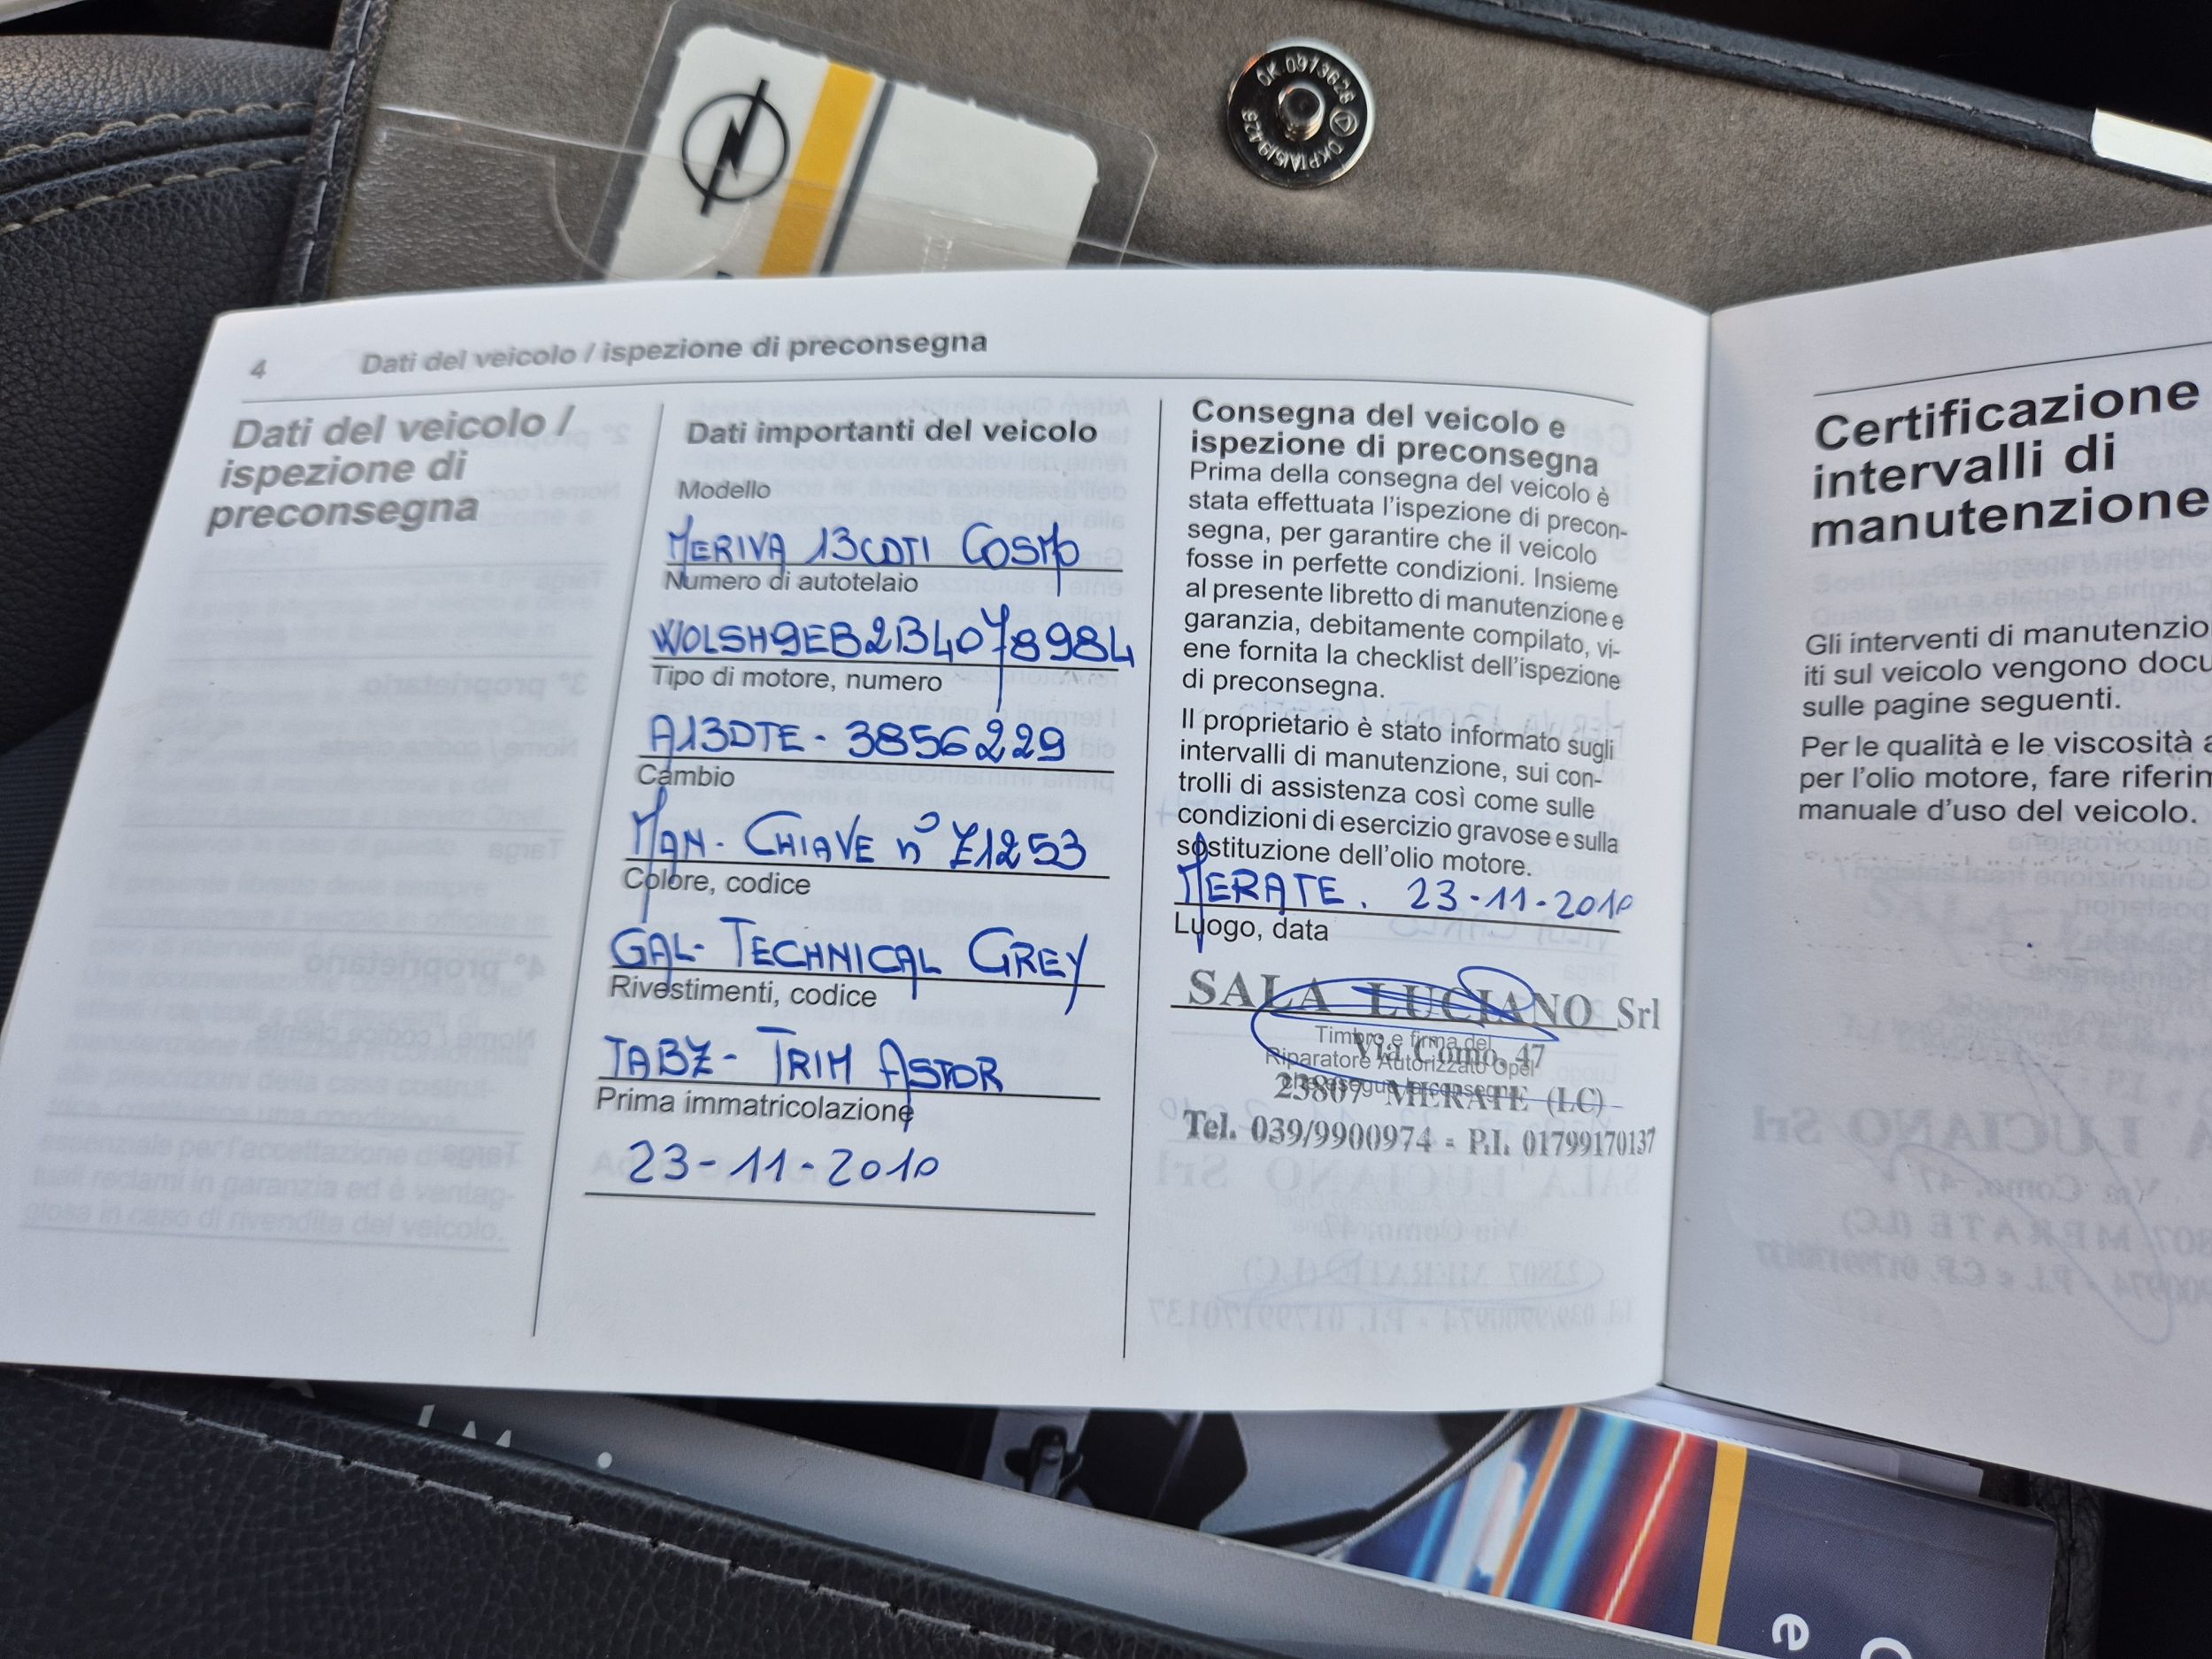 OK 0913628
4
Dati del veicolo / ispezione di preconsegna
Dati del veicolo /
ispezione di
preconsegna
Dati importanti del veicolo
Modello
MERIVA 13CDTI COSMO
Numero di autotelaio
WOLSH9EB2B4078984
Tipo di motore, numero
A13DTE - 3856229
Cambio
MAN - CHIAVE n° Z1253
Colore, codice
GAL - TECHNICAL GREY
Rivestimenti, codice
TABZ - TRIM ASTOR
Prima immatricolazione
23-11-2010
Consegna del veicolo e
ispezione di preconsegna
Prima della consegna del veicolo è
stata effettuata l'ispezione di precon-
segna, per garantire che il veicolo
fosse in perfette condizioni. Insieme
al presente libretto di manutenzione e
garanzia, debitamente compilato, vi-
ene fornita la checklist dell'ispezione
di preconsegna.
Il proprietario è stato informato sugli
intervalli di manutenzione, sui con-
trolli di assistenza così come sulle
condizioni di esercizio gravose e sulla
sostituzione dell'olio motore.
MERATE. 23-11-2010
Luogo, data
SALA LUCIANO Srl
Timbro e firma del
Via Como, 47
Riparatore Autorizzato Opel
che esegue la consegna
23807 MERATE (LC)
Tel. 039/9900974 - P.I. 01799170137
Certificazione
intervalli di
manutenzione
Gli interventi di manutenzio
iti sul veicolo vengono docu
sulle pagine seguenti.
Per le qualità e le viscosità a
per l'olio motore, fare riferim
manuale d'uso del veicolo.